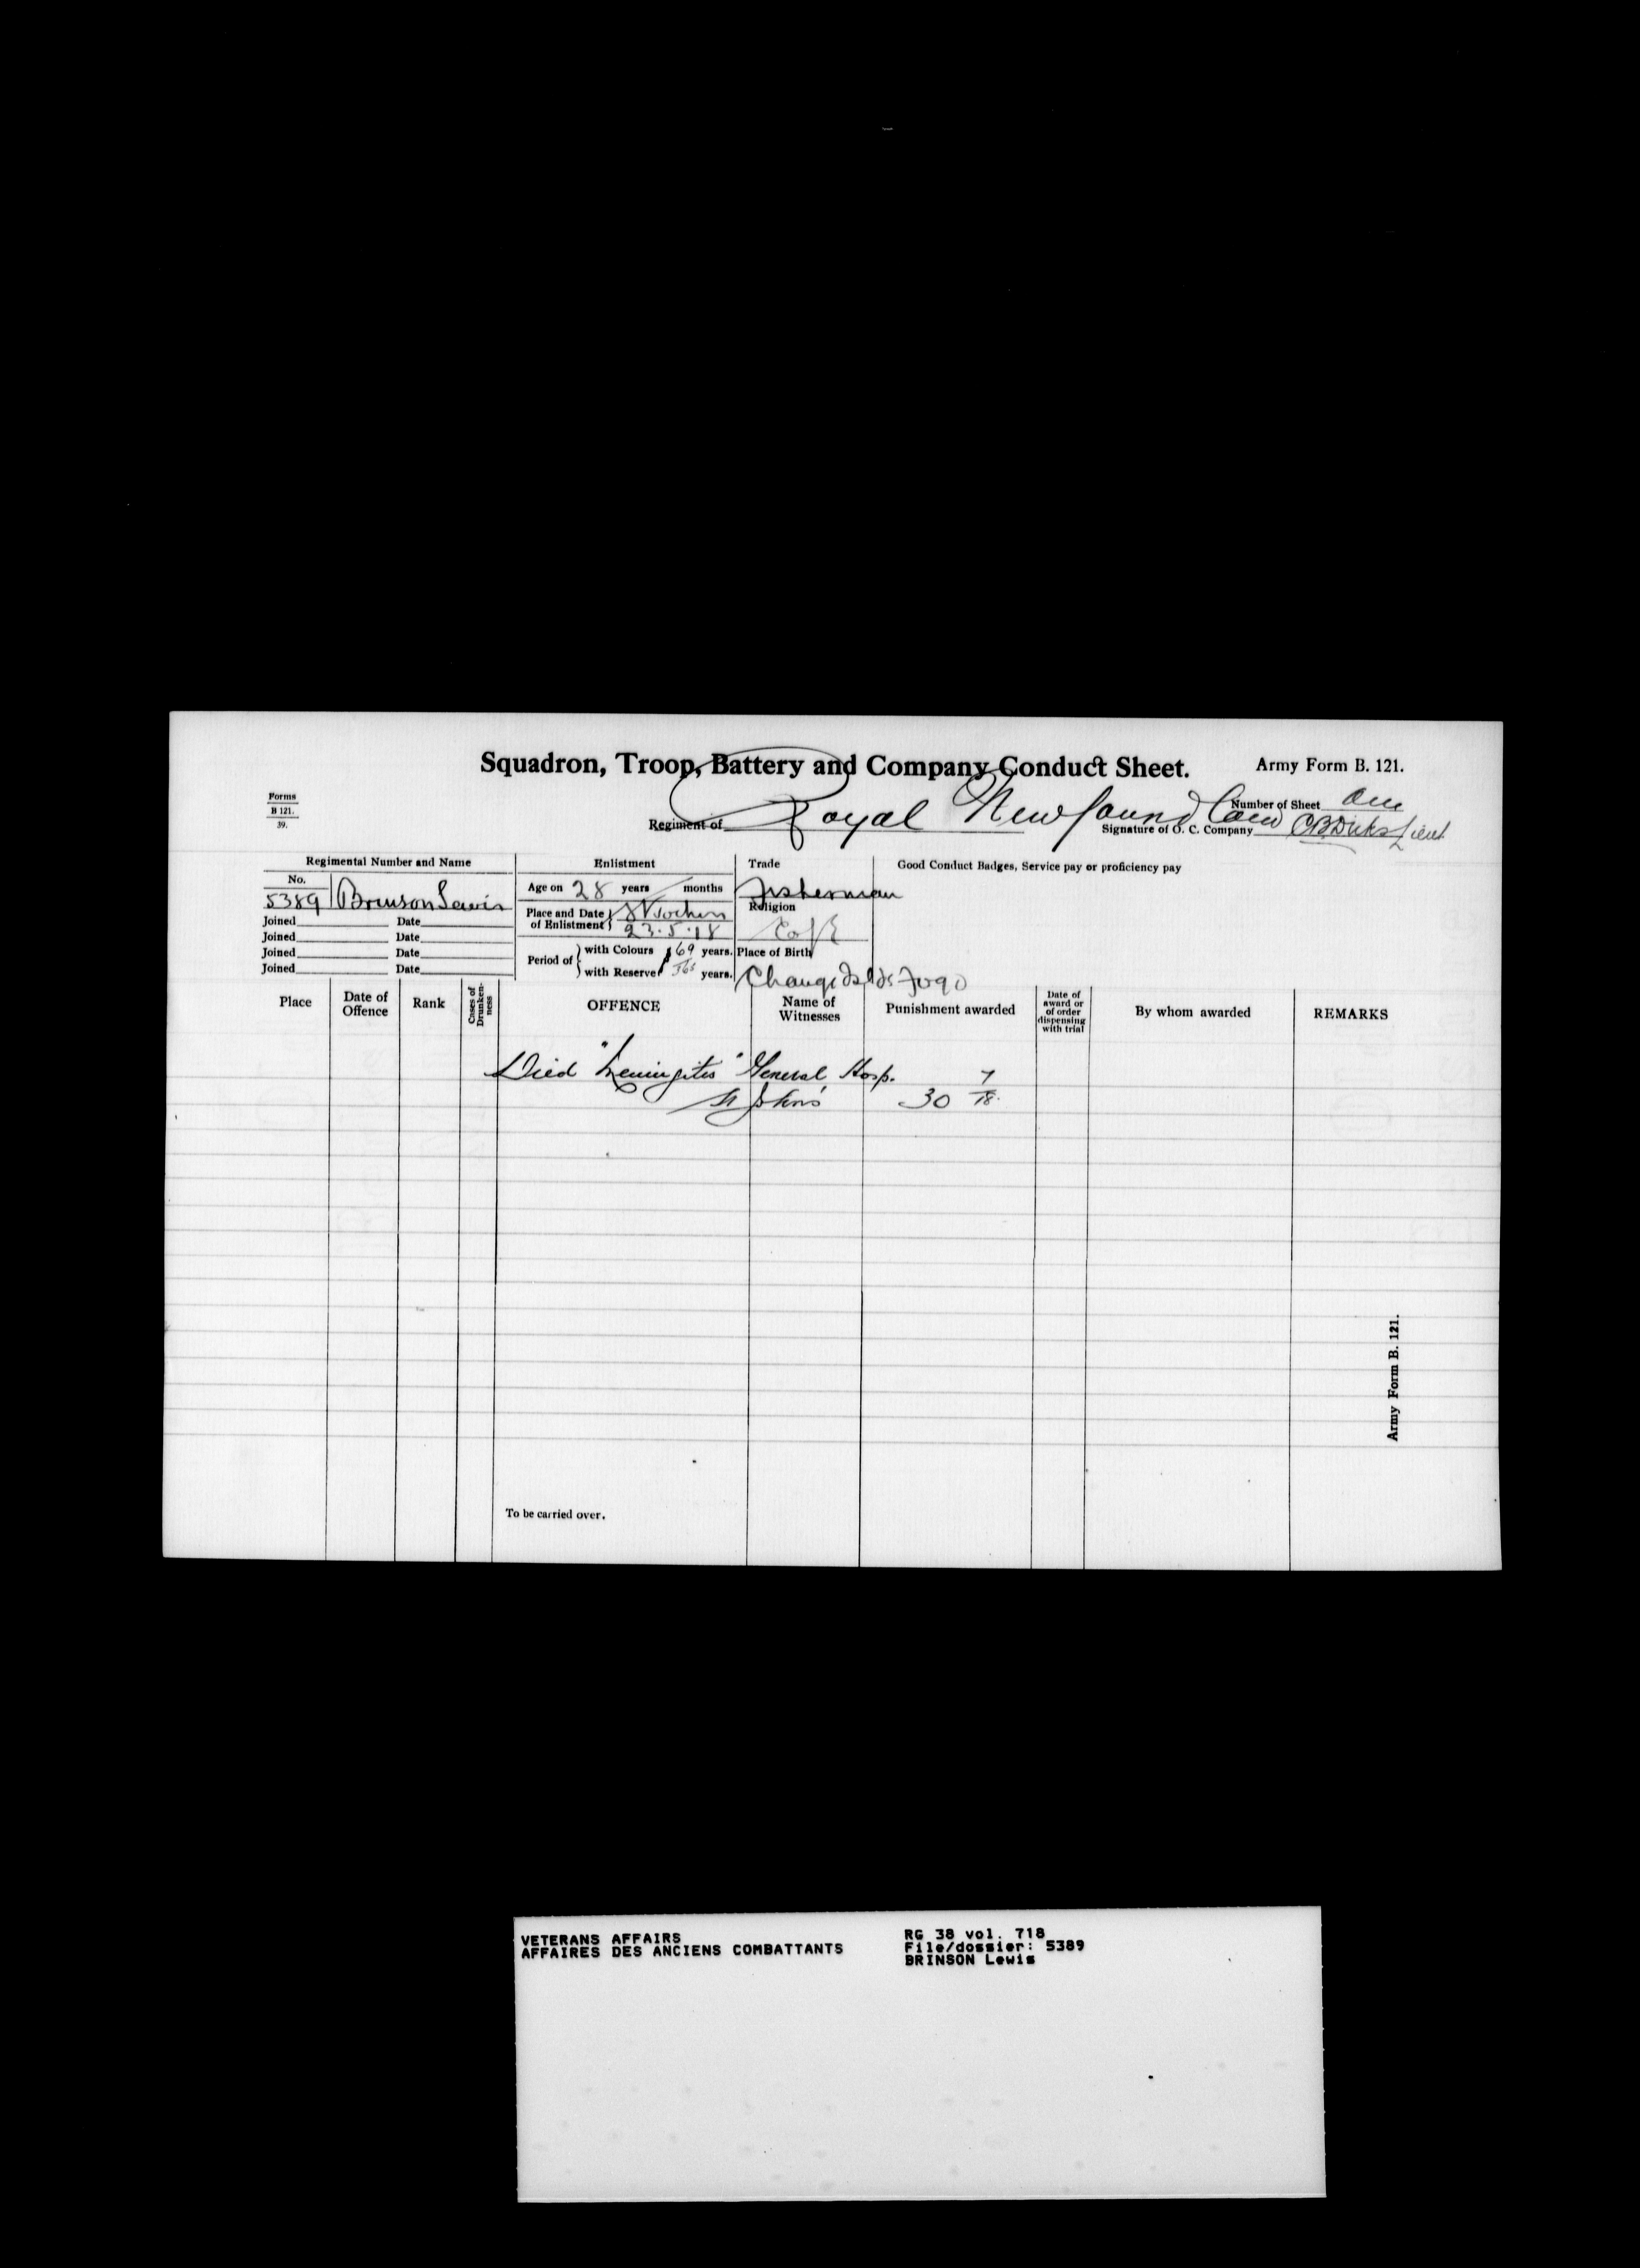 Squadron, Troop, Battery and Company Conduct Sheet.
Army Form B. 121.
Forms
B 121.
39.
Regiment of Royal Newfoundland
Number of Sheet One
Signature of O. C. Company C B Dicks Lieut
Regimental Number and Name
No.
5389 Brinson Lewis
Joined Date
Joined Date
Joined Date
Joined Date
Enlistment
Age on 28 years months
Place and Date of Enlistment St Johns
23.5.18
Period of with Colours 69/365 years.
with Reserve years.
Trade
Fisherman
Religion
C of E
Place of Birth
Change Islds Fogo
Good Conduct Badges, Service pay or proficiency pay
Place
Date of Offence
Rank
Cases of Drunken-ness
OFFENCE
Name of Witnesses
Punishment awarded
Date of award or of order dispensing with trial
By whom awarded
REMARKS
Died "Meningitis" General Hosp.
St Johns 30 7/18.
To be carried over.
Army Form B. 121.
VETERANS AFFAIRS
AFFAIRES DES ANCIENS COMBATTANTS
RG 38 vol. 718
File/dossier: 5389
BRINSON Lewis